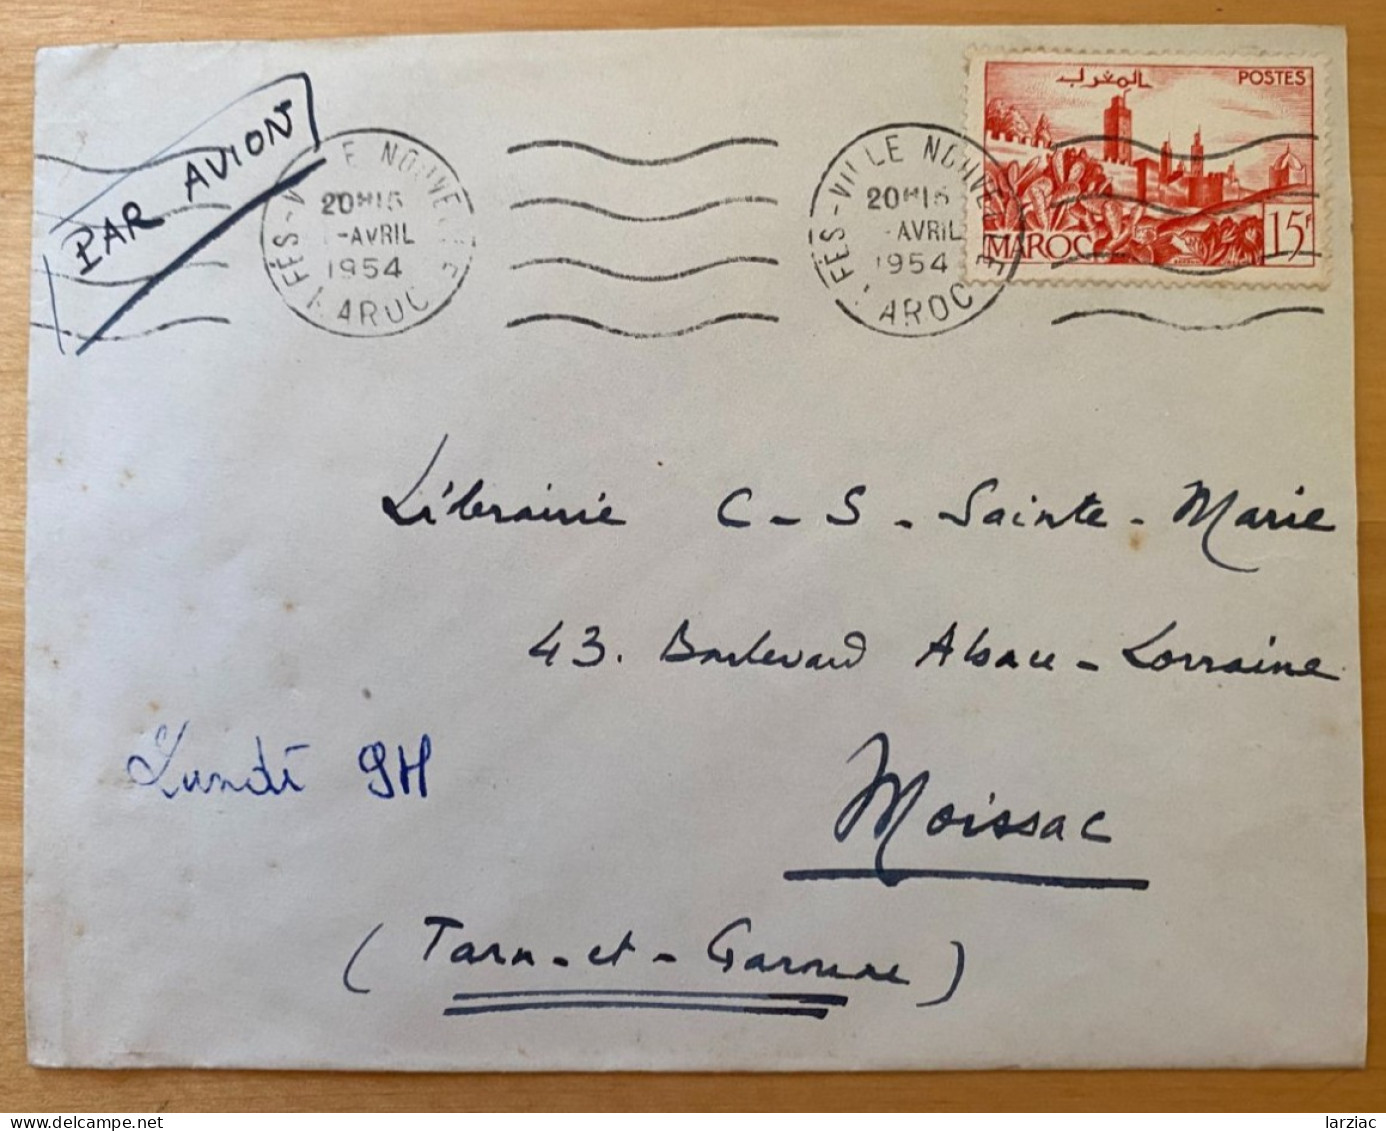 PAR AVION
FÈS-VILLE NOUVELLE
20H15
-AVRIL
1954
MAROC
FÈS-VILLE NOUVELLE
20H15
-AVRIL
1954
MAROC
المغرب
POSTES
MAROC
15F
Librairie C-S-Sainte-Marie
43. Boulevard Alsace-Lorraine
Lundi 9H
Moissac
(Tarn-et-Garonne)
delcampe.net
larziac